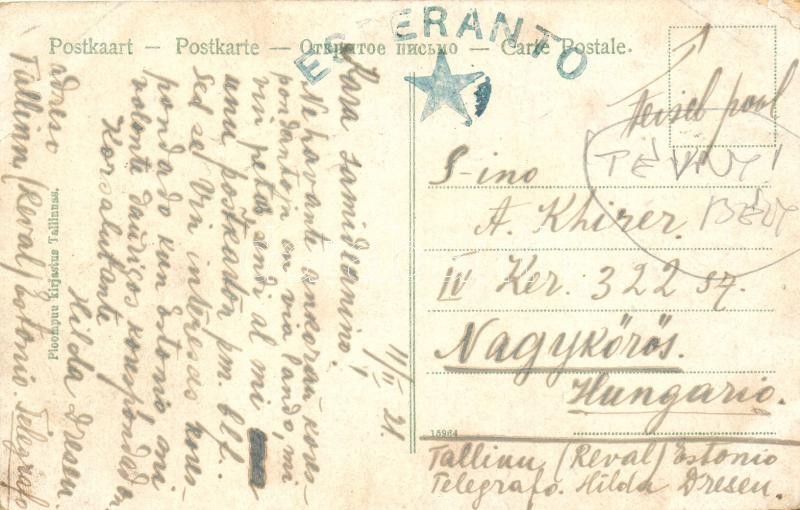 ESPERANTO
Postkaart — Postkarte — Открытое письмо — Carte Postale.
Teisel pool
Kara samideanino!
Ne havante ankoraŭ kores-
pondantojn en via lando, mi
vin petas sendi al mi
unu poŝtkarton pm. bfl.
sed se vin interesas kores-
pondado kun Estonio, mi
volonte daŭrigos korespondadon
Korsalutante
Hilda Dresen.
adreso
Tallinn (Reval) Estonio. Telegrafo
11/II 21.
Ploompuu kirjastus Tallinnas.
F-ino
A. Khirer.
IV Ker. 322 sz.
Nagykőrös.
Hungario.
15964
Tallinn (Reval) Estonio
Telegrafo. Hilda Dresen.